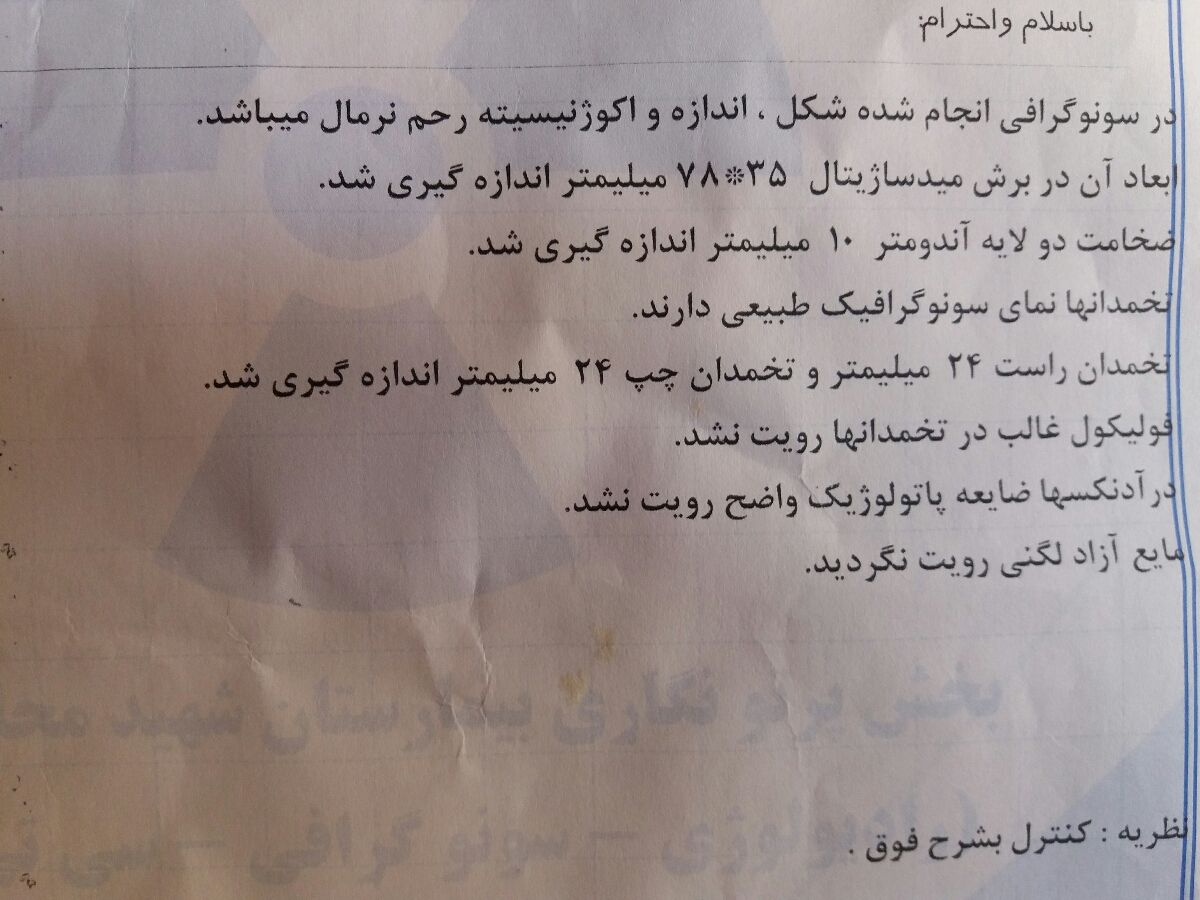 باسلام واحترام:
در سونوگرافی انجام شده شکل ، اندازه و اکوژنیسیته رحم نرمال میباشد.
ابعاد آن در برش میدساژیتال ۳۵*۷۸ میلیمتر اندازه گیری شد.
ضخامت دو لایه آندومتر ۱۰ میلیمتر اندازه گیری شد.
تخمدانها نمای سونوگرافیک طبیعی دارند.
تخمدان راست ۲۴ میلیمتر و تخمدان چپ ۲۴ میلیمتر اندازه گیری شد.
فولیکول غالب در تخمدانها رویت نشد.
درآدنکسها ضایعه پاتولوژیک واضح رویت نشد.
مایع آزاد لگنی رویت نگردید.
بخش پرتو نگاری بیمارستان شهید
رادیولوژی – سونو گرافی – سی تی
نظریه : کنترل بشرح فوق .